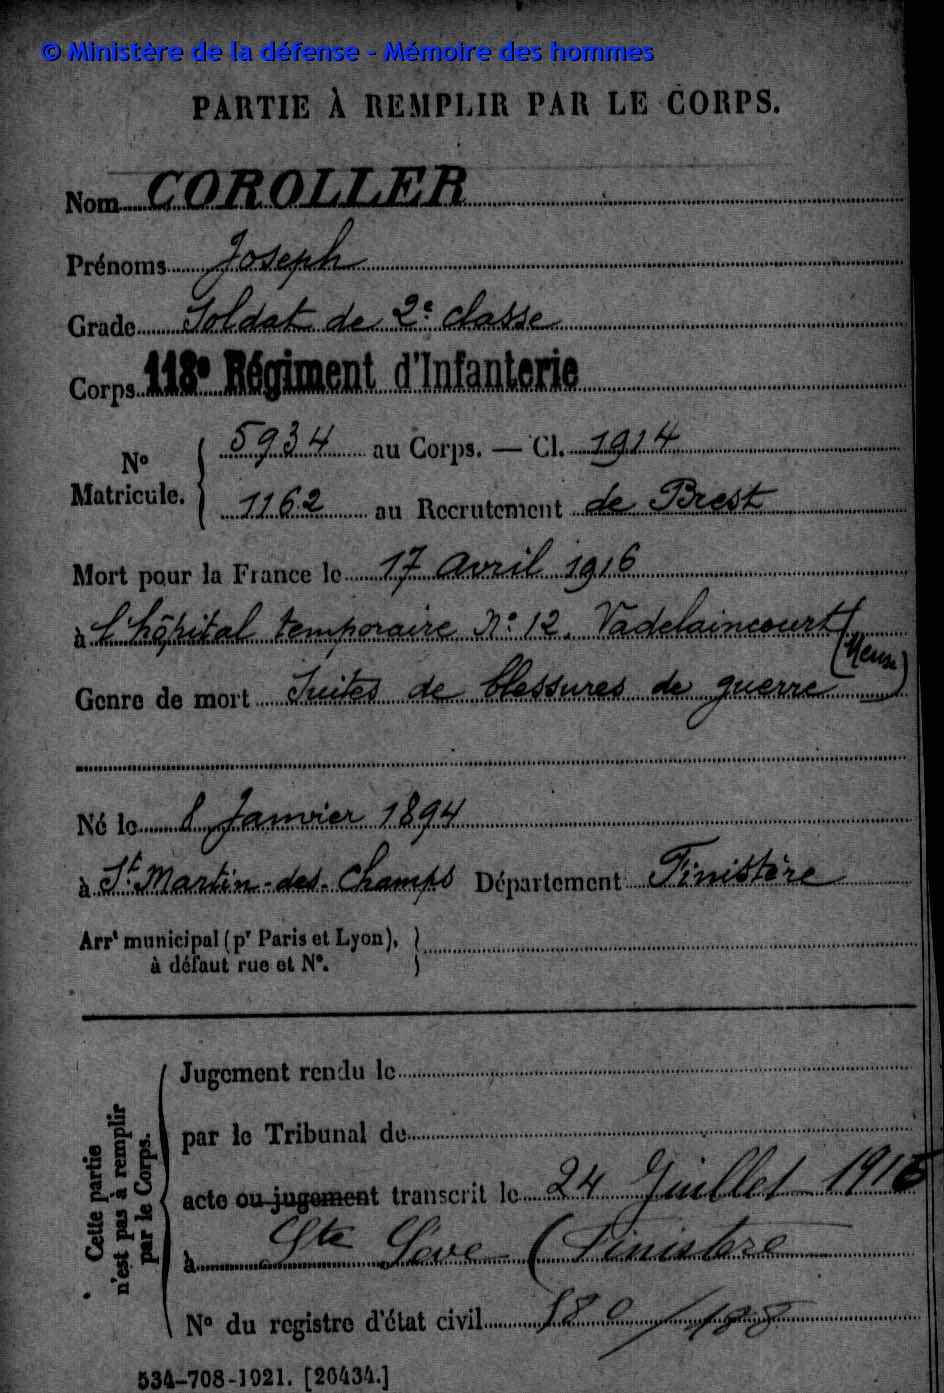 © Ministère de la défense - Mémoire des hommes
PARTIE À REMPLIR PAR LE CORPS.
Nom COROLLER
Prénoms Joseph
Grade Soldat de 2e classe
Corps 118e Régiment d'Infanterie
No Matricule. { 5934 au Corps. — Cl. 1914
1162 au Recrutement de Brest
Mort pour la France le 17 avril 1916
à l'hôpital temporaire No 12. Vadelaincourt (Meuse)
Genre de mort Suites de blessures de guerre
Né le 8 Janvier 1894
à St Martin-des-Champs Département Finistère
Arrt municipal (pr Paris et Lyon), }
à défaut rue et No.
Cette partie n'est pas à remplir par le Corps.
Jugement rendu le
par le Tribunal de
acte ou jugement transcrit le 24 Juillet 1916
à Ste Sève (Finistère
No du registre d'état civil
534-708-1921. [26434.]